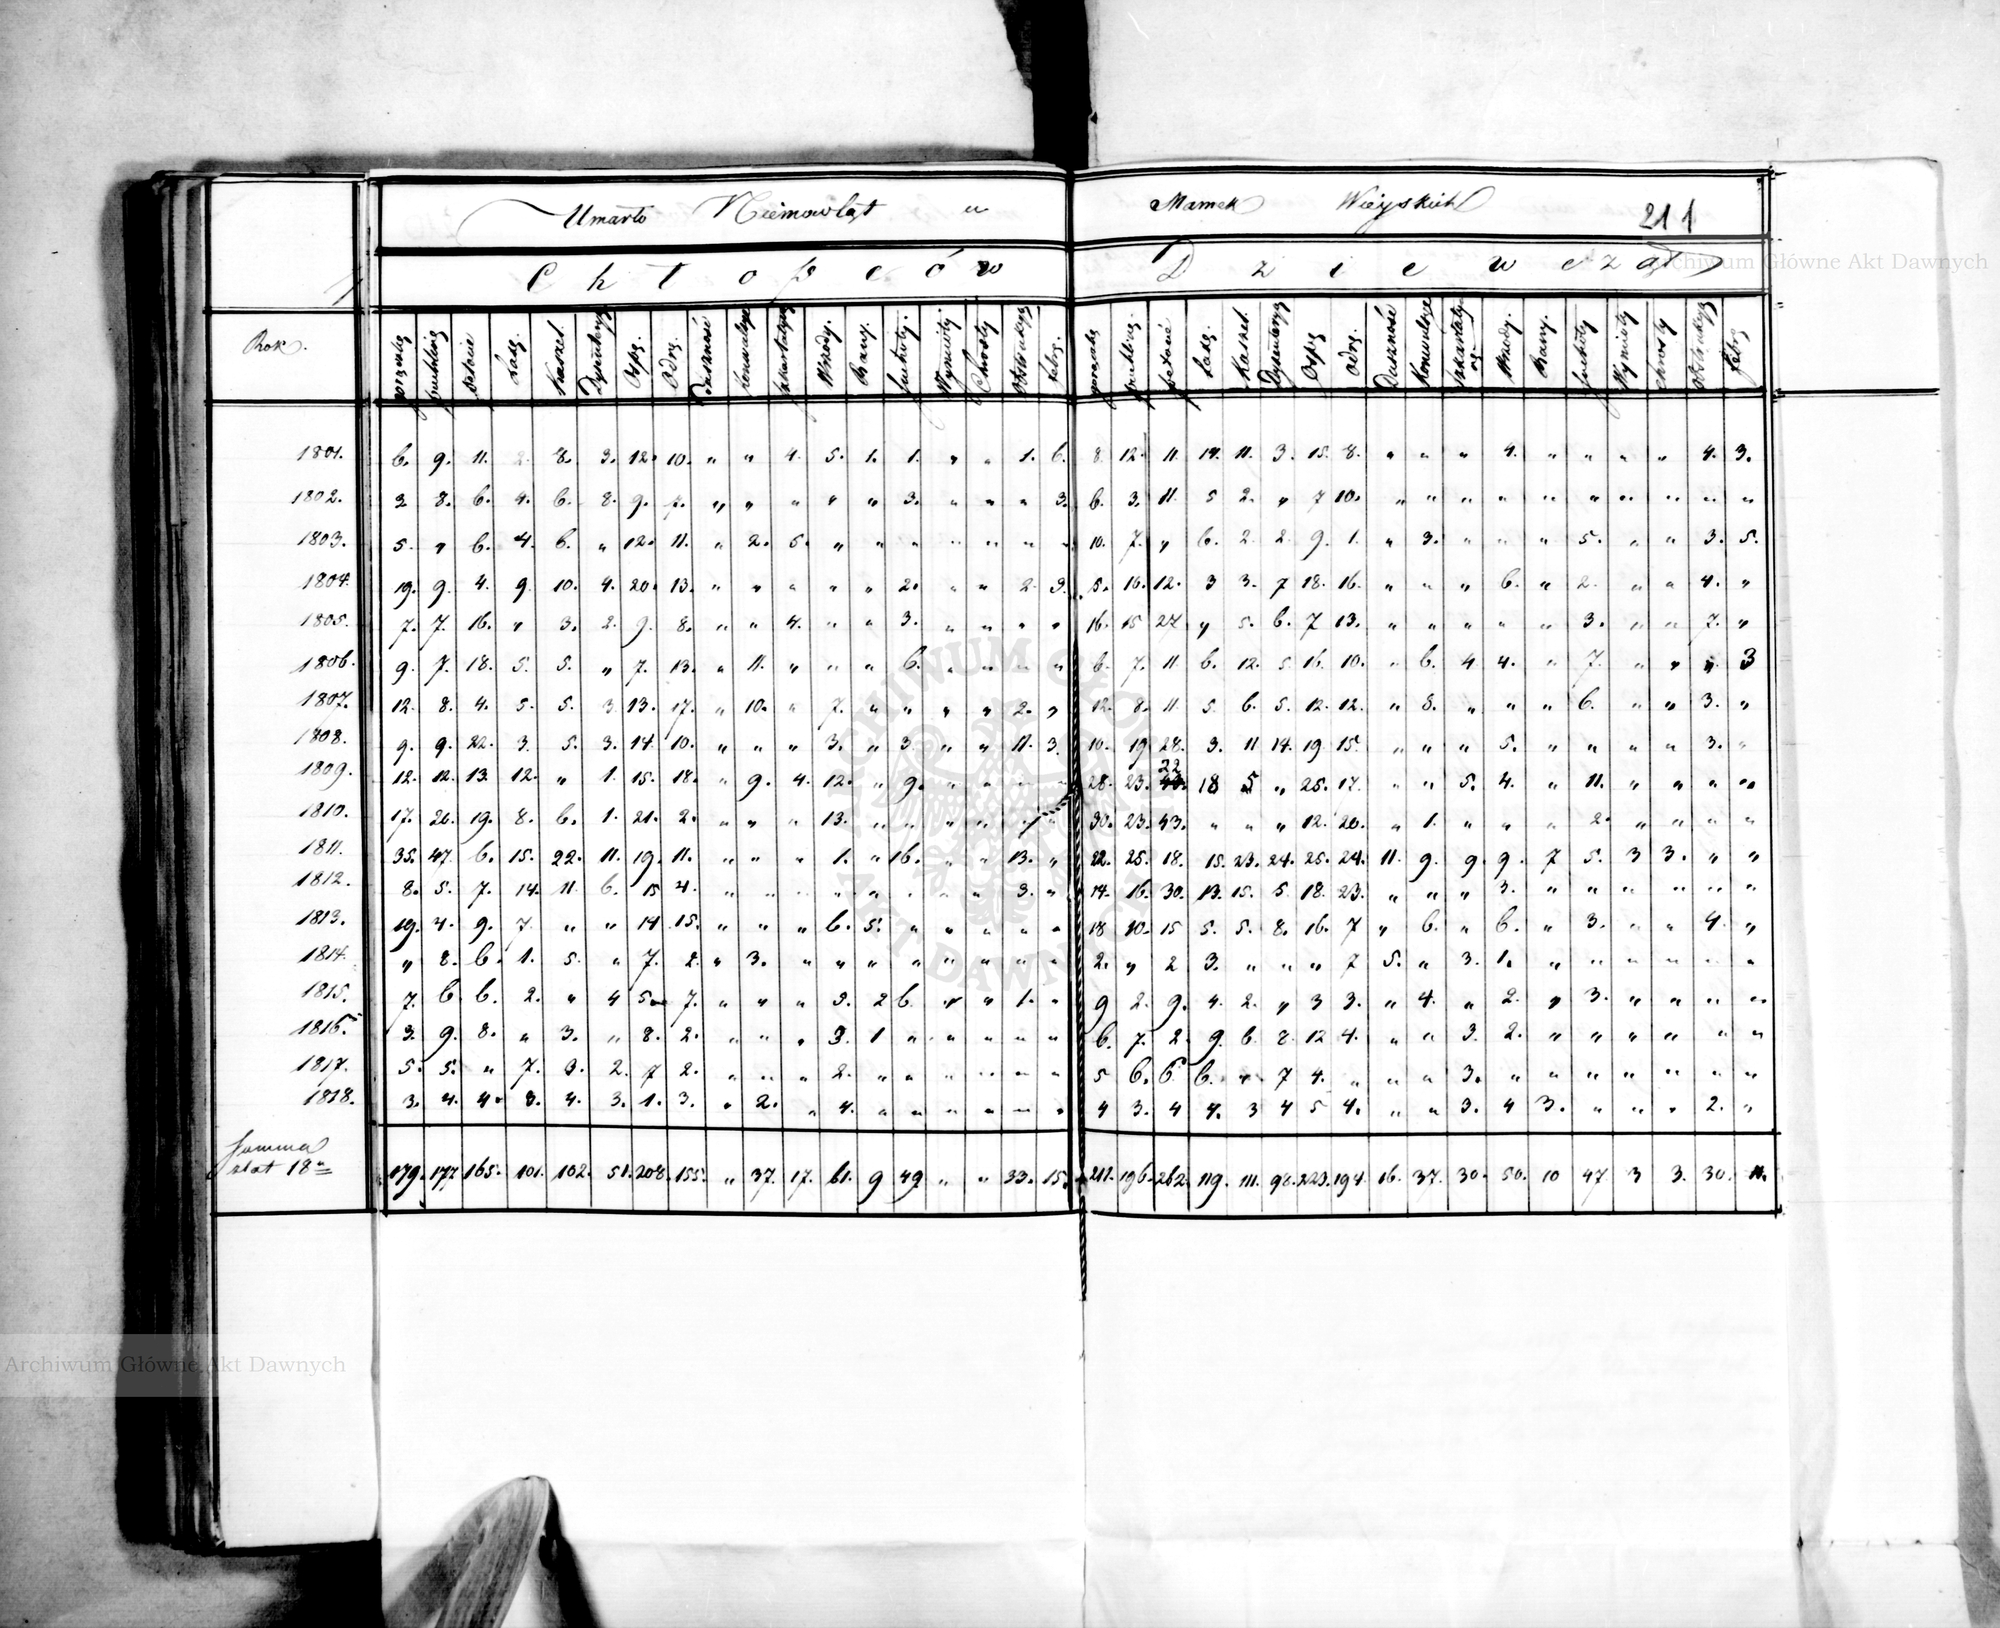 Umarło Niemowląt u Mamek Wieyskich 211
Chłopców Dziewcząt
Archiwum Główne Akt Dawnych
Rok. puchliną Kaszel. Dysenteryą Ospą. Odrą. Duszność Wrzody. Rany. Suchoty. Wymioty Chrosty Kaszel. Dysenteryą Ospą Odrą. Duszność Konwulsye Wrzody. Rany. Suchoty Wymioty Chrosty
1801. 6. 9. 11. 2. 8. 3. 12. 10. " " 4. 5. 1. 1. " " 1. 6. 8. 12. 11. 14. 11. 3. 15. 8. " " " 4. " " " " 4. 3.
1802. 3. 8. 6. 4. 6. 8. 9. 7. " " " " " 3. " " " 3. 6. 3. 11. 5 2. " 7 10. " " " " " " " " " "
1803. 5. " 6. 4. 6. " 12. 11. " 2. 5. " " " " " " " 10. 7. " 6. 2. 2. 9. 1. " 3. " " " 5. " " 3. 5.
1804. 19. 9. 4. 9. 10. 4. 20. 13. " " " " " 2. " " 2. 3. 5. 16. 12. 3 3. 7 18. 16. " " " 6. " 2. " " 4. "
1805. 7. 7. 16. " 3. 2. 9. 8. " " 4. " " 3. " " " " 16. 15 27 " 5. 6. 7 13. " " " " " 3. " " 7. "
1806. 9. 7. 18. 5. 5. " 7. 13. " 11. " " " 6. " " " " 6. 7. 11. 6. 12. 5. 16. 10. " 6. 4 4. " 7. " " " 3
1807. 12. 8. 4. 5. 5. 3. 13. 17. " 10. " 7. " " " " 2. " 12. 8. 11. 5. 6. 5. 12. 12. " 8. " " " 6. " " 3. "
1808. 9. 9. 22. 3. 5. 3. 14. 10. " " " 3. " 3. " " 11. 3. 10. 19 28. 3. 11 14. 19 15. " " " 5. " " " " 3. "
1809. 12. 12. 13. 12. " 1. 15. 18. " 9. 4. 12. " 9. " " " " 28. 23. 22 18 5 " 25. 17. " " 5. 4. " 11. " " " "
1810. 17. 26. 19. 8. 6. 1. 21. 2. " " " 13. " " " " " 30. 23. 43. " " " 12. 20. " 1. " " " 2. " " " "
1811. 35. 47. 6. 15. 22. 11. 19. 11. " " " 1. " 16. " " 13. " 22. 25. 18. 15. 23. 24. 25. 24. 11. 9. 9. 9. 7 5. 3 3. " "
1812. 8. 5. 7. 14. 11. 6. 15 4. " " " " " " " " 3. " 14. 16. 30. 13. 15. 5. 18. 23. " " " 3. " " " " " "
1813. 19. 4. 9. 7. " " 14 15. " " " 6. 5. " " " " " 18 20. 15 5. 5. 8. 16. 7 " 6. " 6. " 3. " " 4. "
1814. " 8. 6. 1. 5. " 7. 2. " 3. " " " " " " " " 2. " 2 3. " " " 7 5. " 3. 1. " " " " " "
1815. 7. 6. 6. 2. " 4 5 7. " " " 3. 2 6. " " 1. " 9 2. 9. 4. 2. " 3 3. " 4. " 2. " 3. " " " "
1816. 3. 9. 8. " 3. " 8. 2. " " " 3. 1 " " " " " 6. 7. 2. 9. 6. 8. 12 4. " " 3. 2. " " " " " "
1817. 5. 5. " 7. 3. 2. 7 2. " " " 2. " " " " " " 5 6. 6. 6. " 7 4. " " " 3. " " " " " " "
1818. 3. 4. 4. 3. 4. 3. 1. 3. " 2. " 4. " " " " " " 4 3. 4 4. 3 4 5 4. " " 3. 4 3. " " " 2. "
Summa
z lat 18
179. 177. 165. 101. 102. 51. 208. 155. " 37. 17. 61. 9 49. " " 33. 15. 211. 196. 262. 119. 111. 98. 223. 194. 16. 37. 30. 50. 10 47 3 3. 30. 11.
Archiwum Główne Akt Dawnych
ARCHIWUM GŁÓWNE AKT DAWNYCH